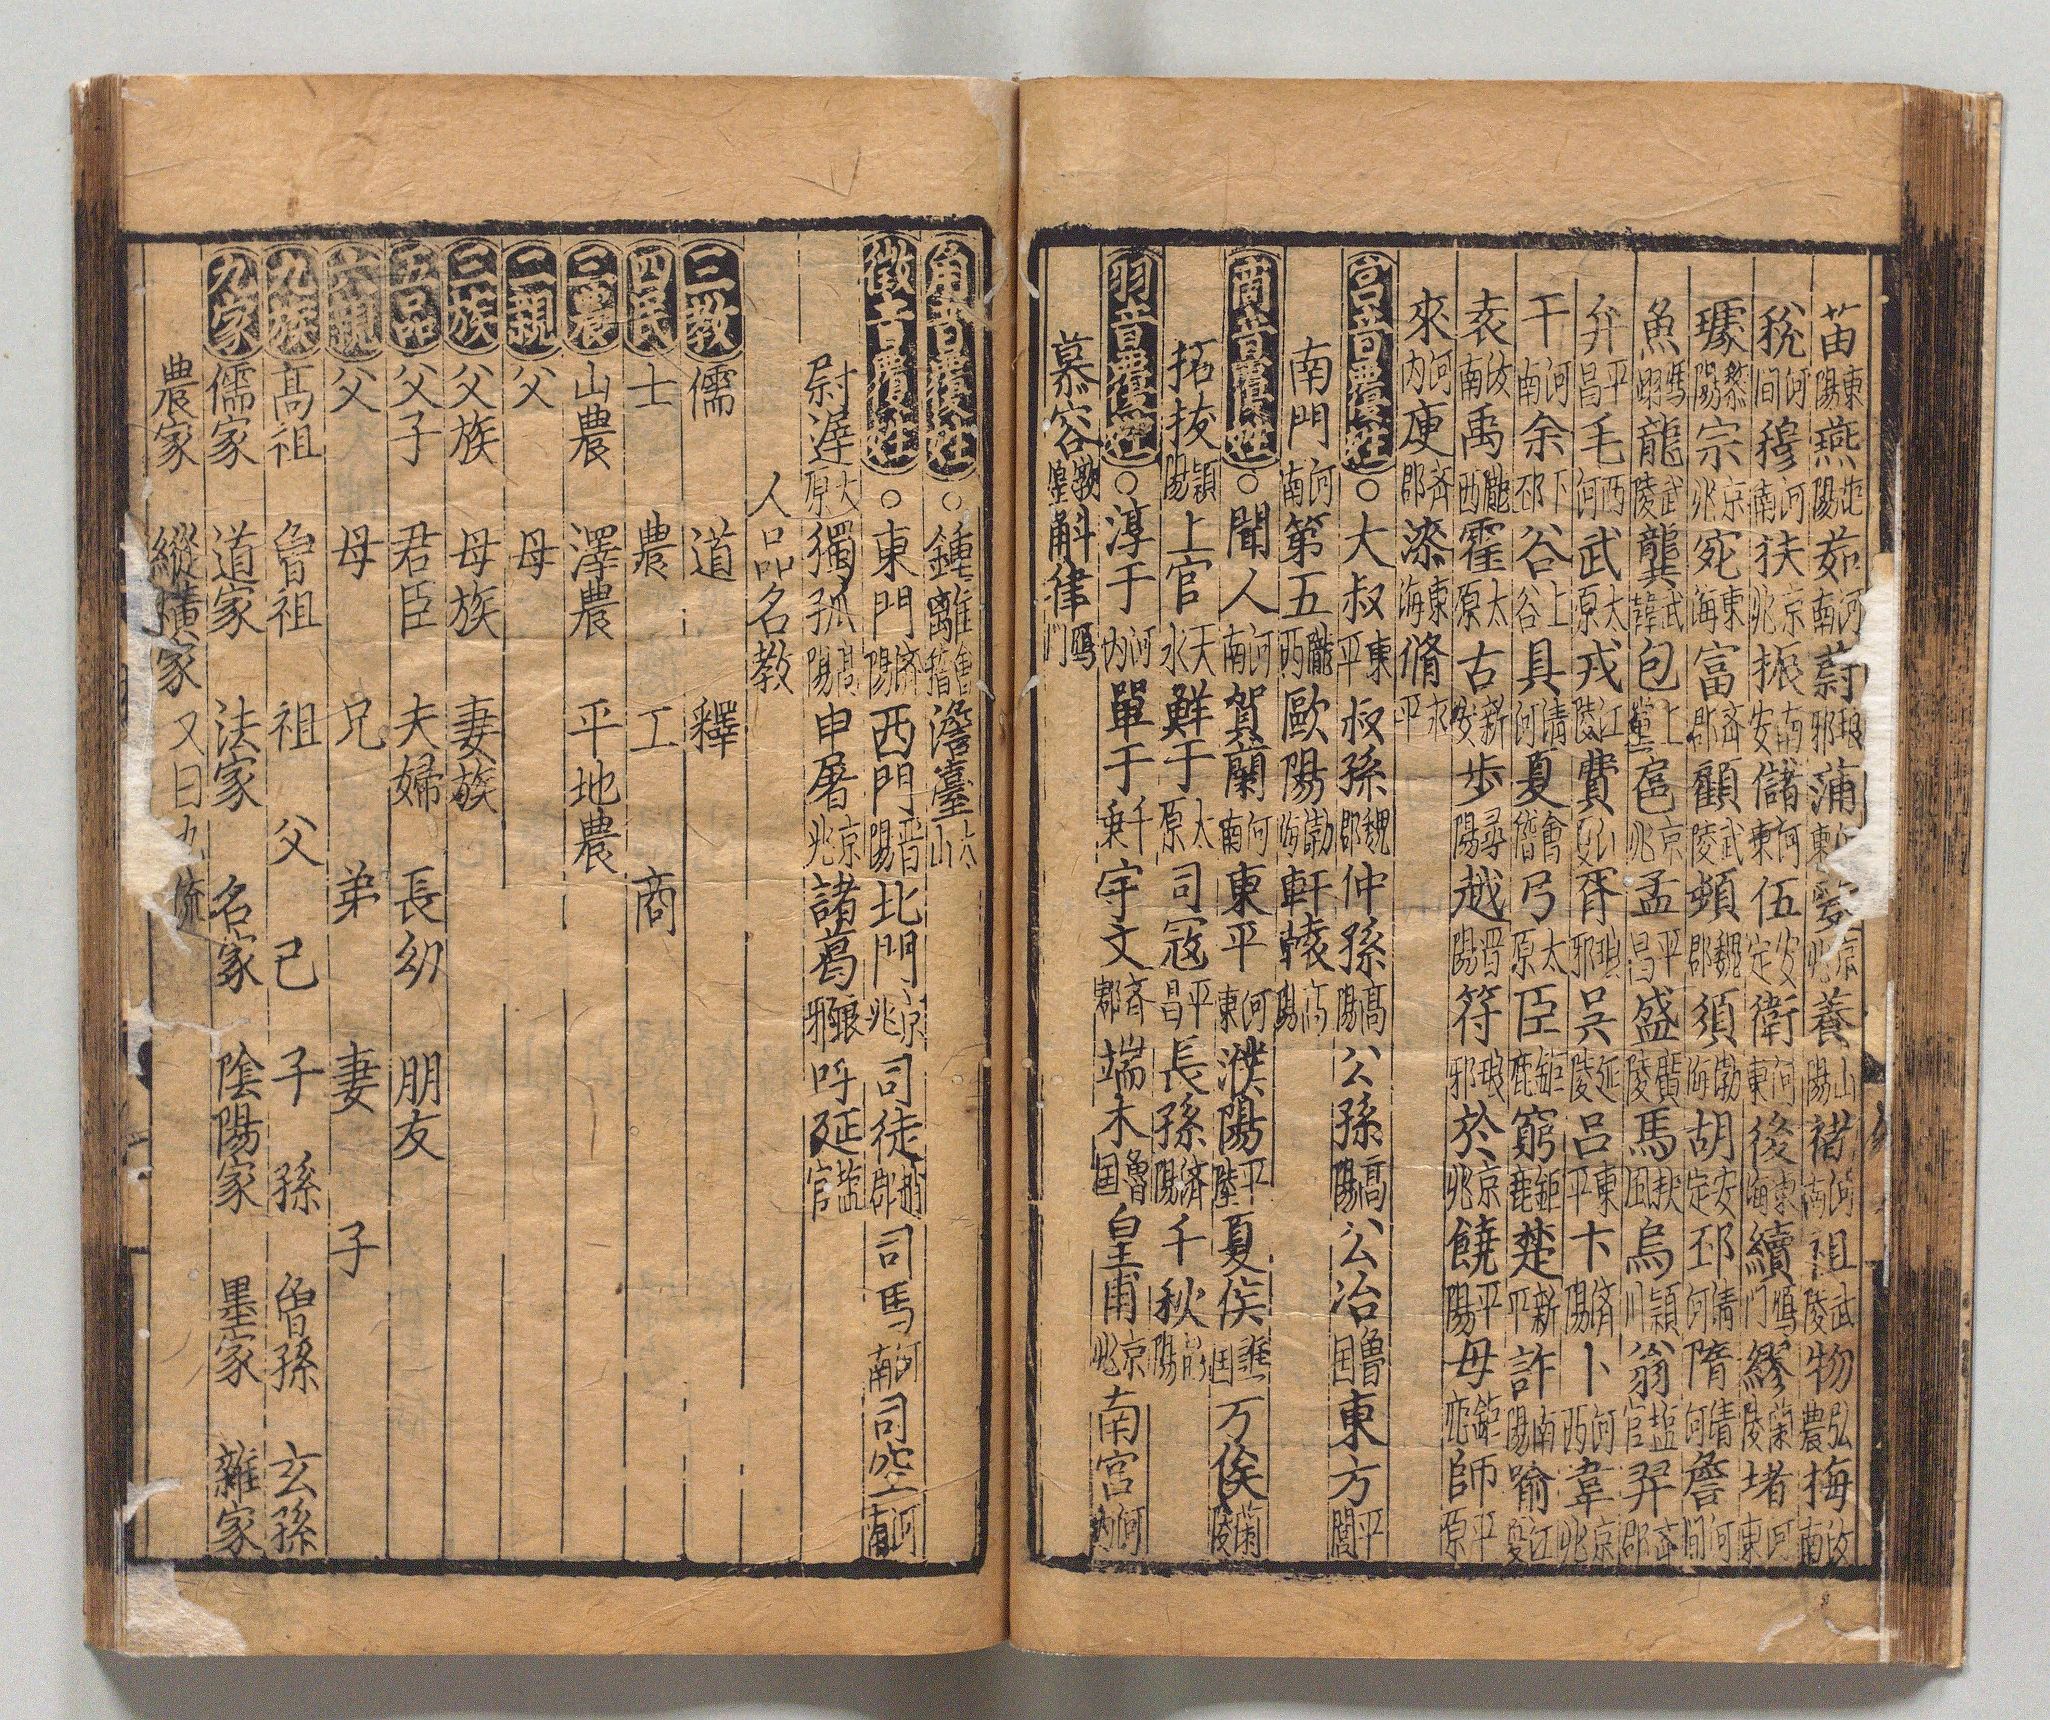 苗東陽燕范陽茹河南蔚琅邪蒲河東 京兆養山陽褚河南祖武陵物弘農梅汝南
稅河間穆河南扶京兆振南安儲河東伍安定衛河東後東海續鴈門繆蘭陵堵河東
璩黎陽宗京兆宛東海富齊郡顧武陵頻魏郡須渤海胡安定邳清河隋清河詹河間
魚馮翊龍武陵龔武陵包上黨扈京兆孟平昌盛廣陵馬扶風烏潁川翁塩官羿齊郡
弁平昌毛西河武太原戎江陵費江夏胥琅邪吳延陵呂東平卞濟陽卜河西韋京兆
干河南余下邳谷上谷具清河夏會稽弓太原臣鉅鹿窮鉅鹿楚新平許南陽喻江夏
袁汝南禹隴西霍太原古新安步尋陽越晉陽符琅邪於京兆饒平陽毋鉅鹿師平原
來河內庾齊郡漆東海脩永平
宮音覆姓○大叔東平叔孫魏郡仲孫高陽公孫高陽公冶魯国東方平
南門河南第五隴西歐陽渤海軒轅
商音覆姓○聞人河南賀蘭河南東平河東濮陽平陸夏侯譙国万俟蘭陵
拓拔潁陽上官天水鮮于太原司寇平昌長孫濟陽千秋
羽音覆姓○淳于河內單于千乗宇文齊郡端木魯国皇甫京兆南宮河內
慕容斛律鴈門
角音覆姓○鍾離會稽澹臺太山
徵音覆姓○東門濟陽西門晋陽北門京兆司徒趙郡司馬河南司空河南
尉遲太原獨孤高陽申屠京兆諸葛琅邪呼延塩官
人品名教
三教 儒 道 釋
四民 士 農 工 商
三農 山農 澤農 平地農
二親 父 母
三族 父族 母族 妻族
五品 父子 君臣 夫婦 長幼 朋友
六親 父 母 兄 弟 妻 子
九族 高祖 曾祖 祖 父 己 子 孫 曾孫 玄孫
九家 儒家 道家 法家 名家 陰陽家 墨家 雜家
農家 縱橫家 又曰九流